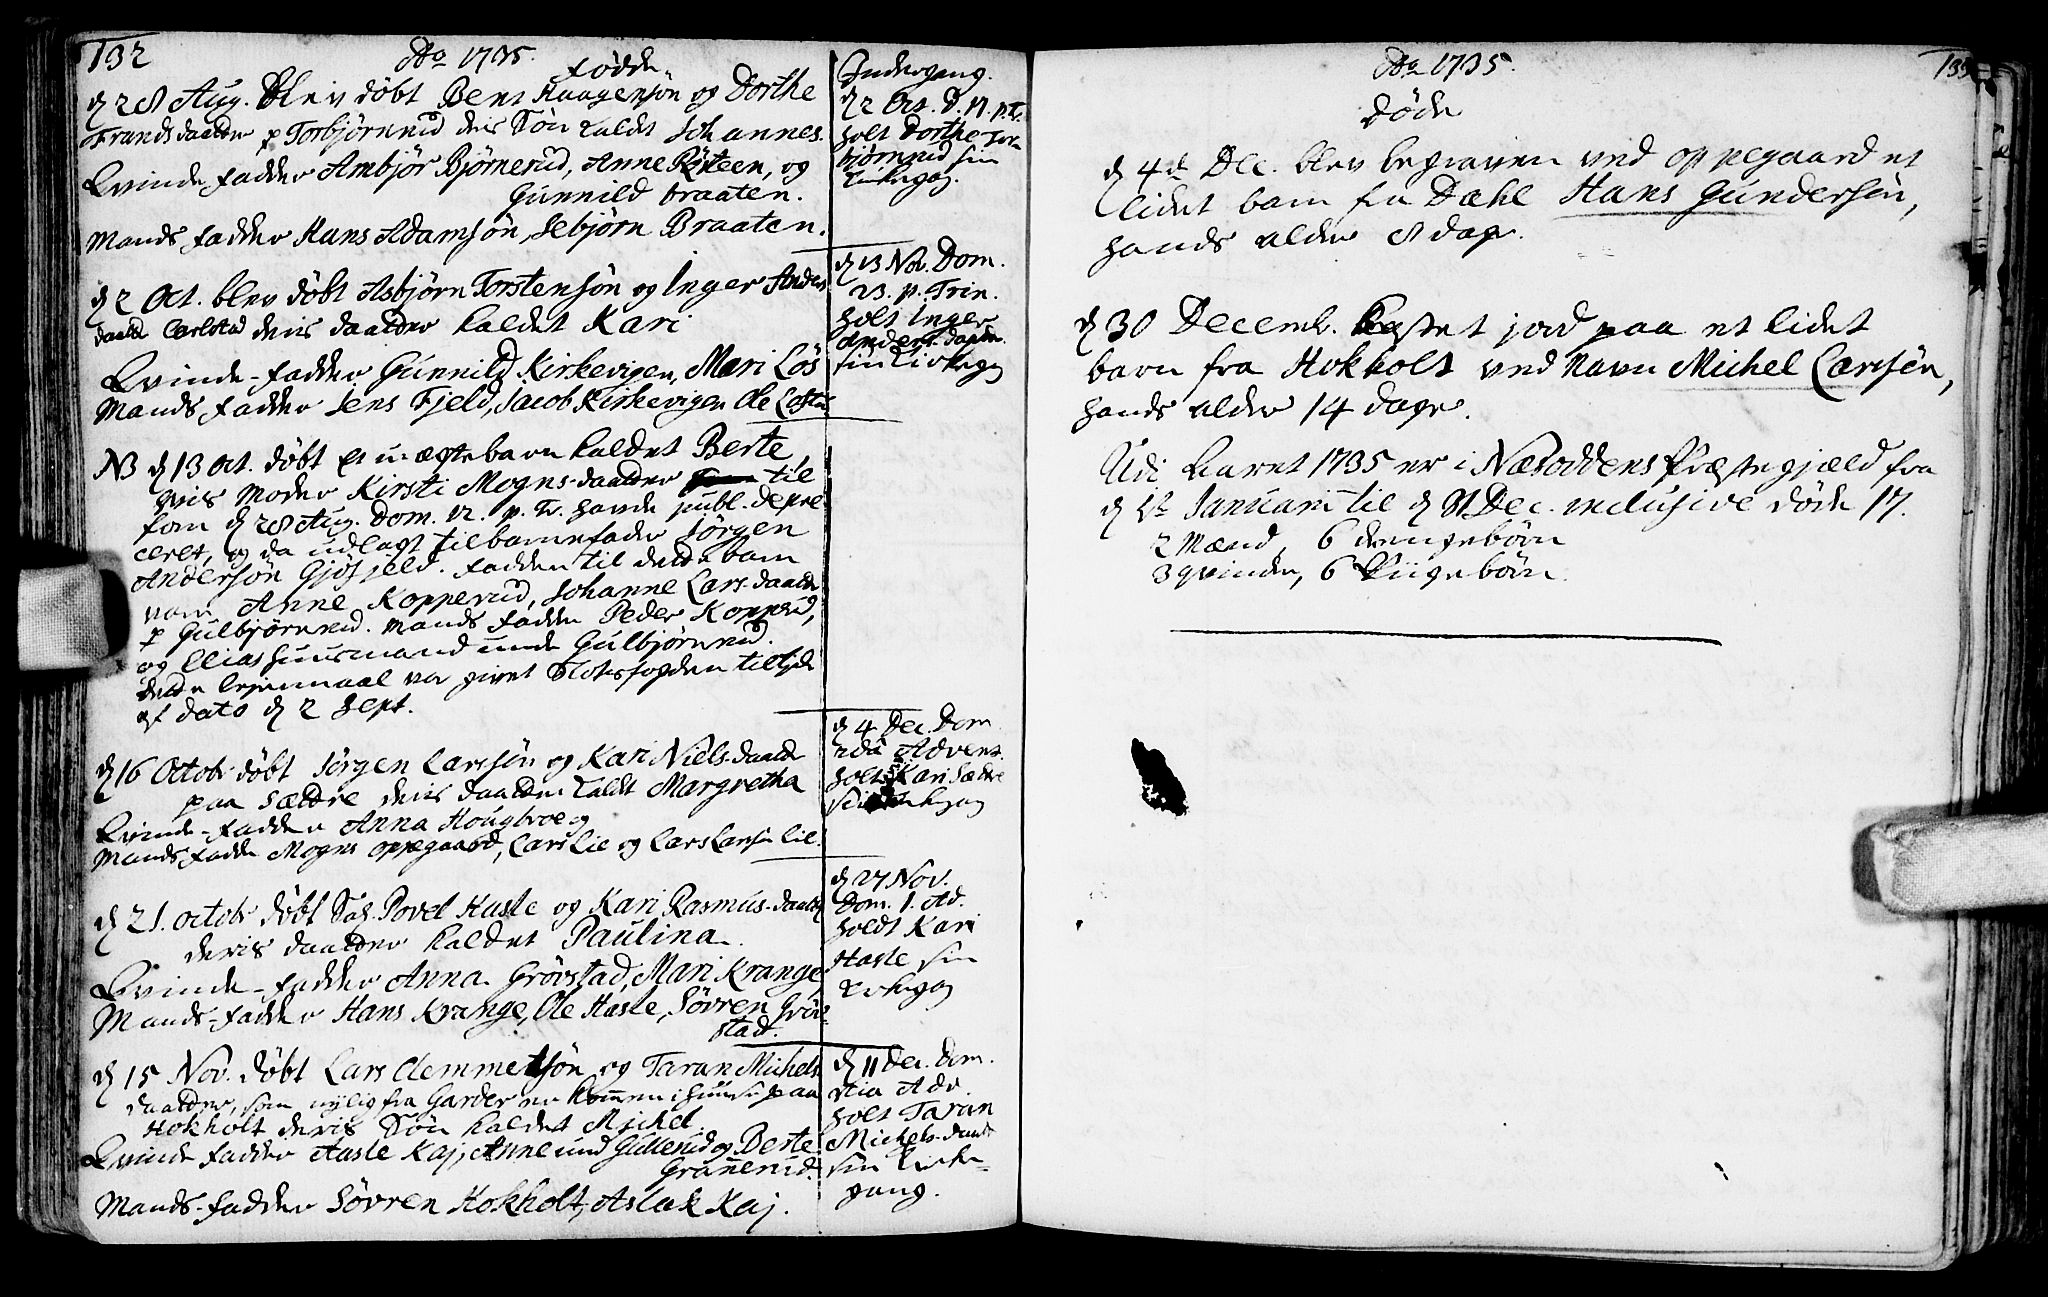 132
Ao 1735.
Födde
d 28 Aug. blev döbt Bent Haagensön og Dorthe
Frandsdaatter p Torbjörnrud deris Sön kaldet Johannes.
Qvinde-fadder Ambjör Björnerud, Anne Rösteen, og
Gunnild braaten.
Mands fadder Hans Adamsön, Sebjörn Braaten.
d 2 Oct. blev döbt Asbjörn Torstensön og Inger Anders
daatt Carlstad deris daatter kaldet Kari
Qvinde-fadder Gunnild Kirkevigen, Mari Lös
Mands fadder Jens Fjeld, Jacob Kirkevigen Ole
NB d 13 Oct. döbt Et uægte barn kaldet Berte,
hvis Moder Kirsti Mogns-daatter til
forn d 28 Aug. Dom. 12. p. Tr. havde publ. depre
ceret, og da udlagt til barnefader Jörgen
Andersön Gjöfjeld. fadder til dette barn
vare Anne Kopperud, Johanne Lars-daatter
p Gulbjörnrud. Mands fadder Peder Kopperud,
og Elias huusmand unde Gulbjörnrud.
dette lejermaal var givet Slotsfogden tilkiende
af dato d 2 Sept.
d 16 Octobr döbt Jörgen Larsön og Kari Niels-daatter
paa Sætdre deris daatter kaldt Margretha
Qvinde-fadder Anna Hougbroe og
Mands fadder Mogns oppegaard, Lars Lie og Lars Larsön Lie.
d 21. octobr döbt Povel Hasle og Kari Rasmus-daatter
deris daatter kaldet Paulina.
Qvinde-fadder Anna Grövstad, Mari Krange,
Mands-fadder Hans Krange, Ole Hasle, Sövren Gröv-
stad.
d 15 Nov. döbt Lars Clemmetsön og Taran Michels
daatter, som nylig fra Garder er kommen i huuse paa
Hokholt deris Sön kaldet Michel.
Qvinde fadder Aasle Kaj, Anne und Gillerud og Berte
Granerud.
Mands-fadder Sövren Hokholt, Aslak Kaj.
Indergang.
d 2 Oct. D. 17. p. Tr.
holt Dorthe Tor
björnrud sin
kirkegag.
d 13 Nov. Dom.
23. p. Trin.
holt Inger
Anders. daatter
sin kirkegag
d 4 Dec. Dom
2da Advent.
holt Kari Sætdre
sin kirkegag
d 27 Nov.
Dom. 1. Ad.
holdt Kari
Hasle sin
kirkegag
d 11 Dec. Dom.
3tia Adv.
holt Taran
Michels-daatt
sin kirke-
gang.
Ao 1735.
133
Döde
d 4de Dec. blev begraven ved oppegaard et
lidet barn fra Dæhl Hans Gundersön,
hands alder 8 dage.
d 30 Decemb. kastet jord paa et lidet
barn fra Hokholt ved navn Michel Larsön,
hands alder 14 dage.
Udi Aaret 1735 er i Næsoddens Præstegjæld fra
d 1te Januarii til d 31 Dec. inclusive döde 17.
2 Mænd, 6 drengebörn
3 qvinder, 6 Piigebörn.